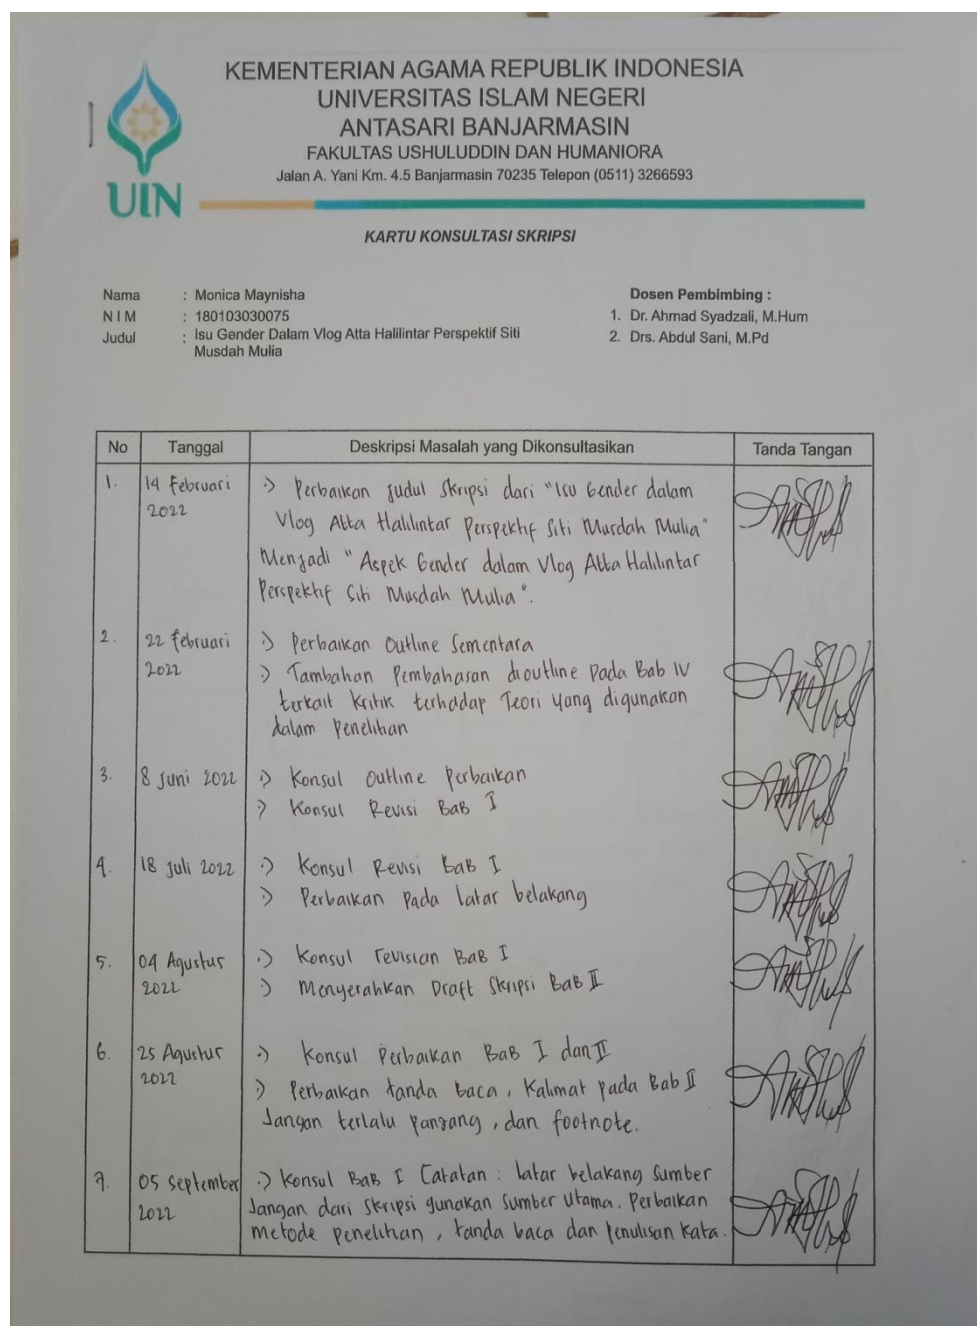 KEMENTERIAN AGAMA REPUBLIK INDONESIA
UNIVERSITAS ISLAM NEGERI
ANTASARI BANJARMASIN
FAKULTAS USHULUDDIN DAN HUMANIORA
Jalan A. Yani Km. 4.5 Banjarmasin 70235 Telepon (0511) 3266593
UIN
KARTU KONSULTASI SKRIPSI
Nama : Monica Maynisha
N I M : 180103030075
Judul : Isu Gender Dalam Vlog Atta Halilintar Perspektif Siti
Musdah Mulia
Dosen Pembimbing :
1. Dr. Ahmad Syadzali, M.Hum
2. Drs. Abdul Sani, M.Pd
No Tanggal Deskripsi Masalah yang Dikonsultasikan Tanda Tangan
1. 14 Februari :) Perbaikan Judul Skripsi dari "Isu Gender dalam
2022 Vlog Atta Halilintar Perspektif Siti Musdah Mulia"
Menjadi "Aspek Gender dalam Vlog Atta Halilintar
Perspektif Siti Musdah Mulia".
2. 22 Februari :) Perbaikan Outline Sementara
2022 :) Tambahan Pembahasan dioutline Pada Bab IV
terkait Kritik terhadap Teori yang digunakan
dalam Penelitian
3. 8 Juni 2022 :) Konsul Outline Perbaikan
:) Konsul Revisi BaB I
4. 18 Juli 2022 :) Konsul Revisi BaB I
:) Perbaikan Pada latar belakang
5. 04 Agustus :) Konsul revisian BaB I
2022 :) Menyerahkan Draft Skripsi BaB II
6. 25 Agustus :) Konsul Perbaikan BaB I dan II
2022 :) Perbaikan tanda baca, Kalimat pada Bab II
Jangan terlalu panjang, dan footnote.
7. 05 September :) Konsul BaB I Catatan : latar belakang Sumber
2022 Jangan dari Skripsi gunakan sumber utama, Perbaikan
metode penelitian, tanda baca dan penulisan Kata.